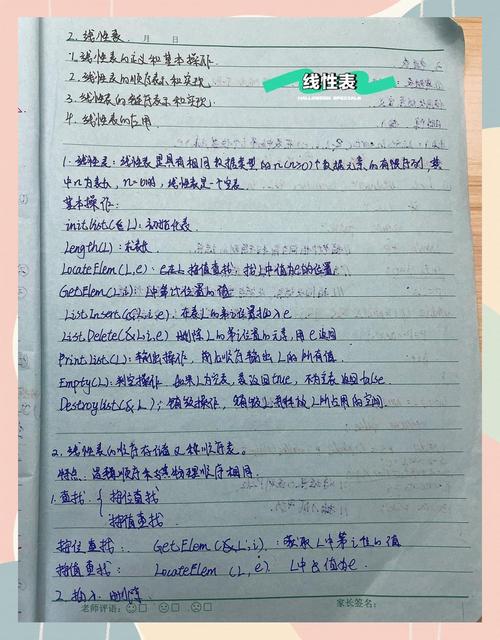 2. 线性表.
月 日
线性表
HALLOWEEN SPECIALS
1. 线性表的定义和基本操作.
2. 线性表的顺序表示和实现.
3. 线性表的链式表示和实现.
4. 线性表的应用
1. 线性表: 线性表是具有相同数据类型的n(n≥0)个数据元素的有限序列, 其
中n为表长, n=0时, 线性表是一个空表.
基本操作:
initlist(&L): 初始化表.
Length(L): 求表长.
LocateElem(L,e): 在L按值查找 找L中值为e的位置
GetElem(L,i): L中第i个位置的值
ListInsert(&L,i,e): 在表L的第i位置插入e
ListDelete(&L,i,e) 删除L的第i位置的元素, 用e返回
Printlist(L): 输出操作, 按顺序输出L的所有值.
Empty(L): 判空操作 如果L为空表, 表返回true, 不为空表返回false.
Destroylist(&L); 销毁操作, 销毁L并释放L所占用的空间.
2. 线性表的顺序存储又称顺序表.
特点 逻辑顺序和其物理顺序相同.
1. 查找. { 按位查找
按值查找.
按位查找: GetElem(&L,i). : 获取L中第i个位的值
按值查找: LocateElem (L,e). L中 值为e.
2. 插入. 删除
老师评语:
家长签名: